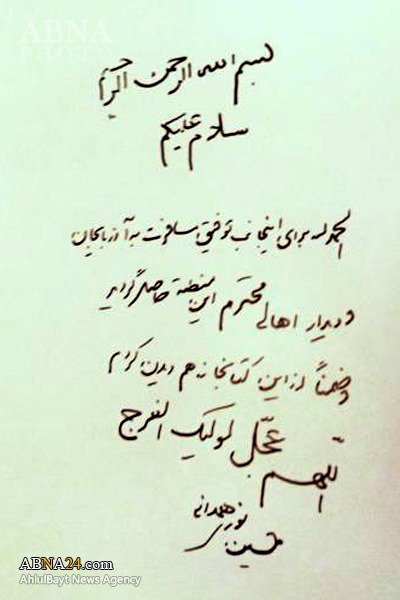 ABNA
PHOTO
بسم الله الرحمن الرحیم
سلام علیکم
الحمد لله برای اینجانب توفیق مسافرت به آذربایجان
و دیدار اهالی محترم این منطقه حاصل گردید
و ضمناً از این کتابخانه هم دیدن کردم
اللّهم عجّل لولیک الفرج
حسین نوری همدانی
ABNA24.com
AhlulBayt News Agency